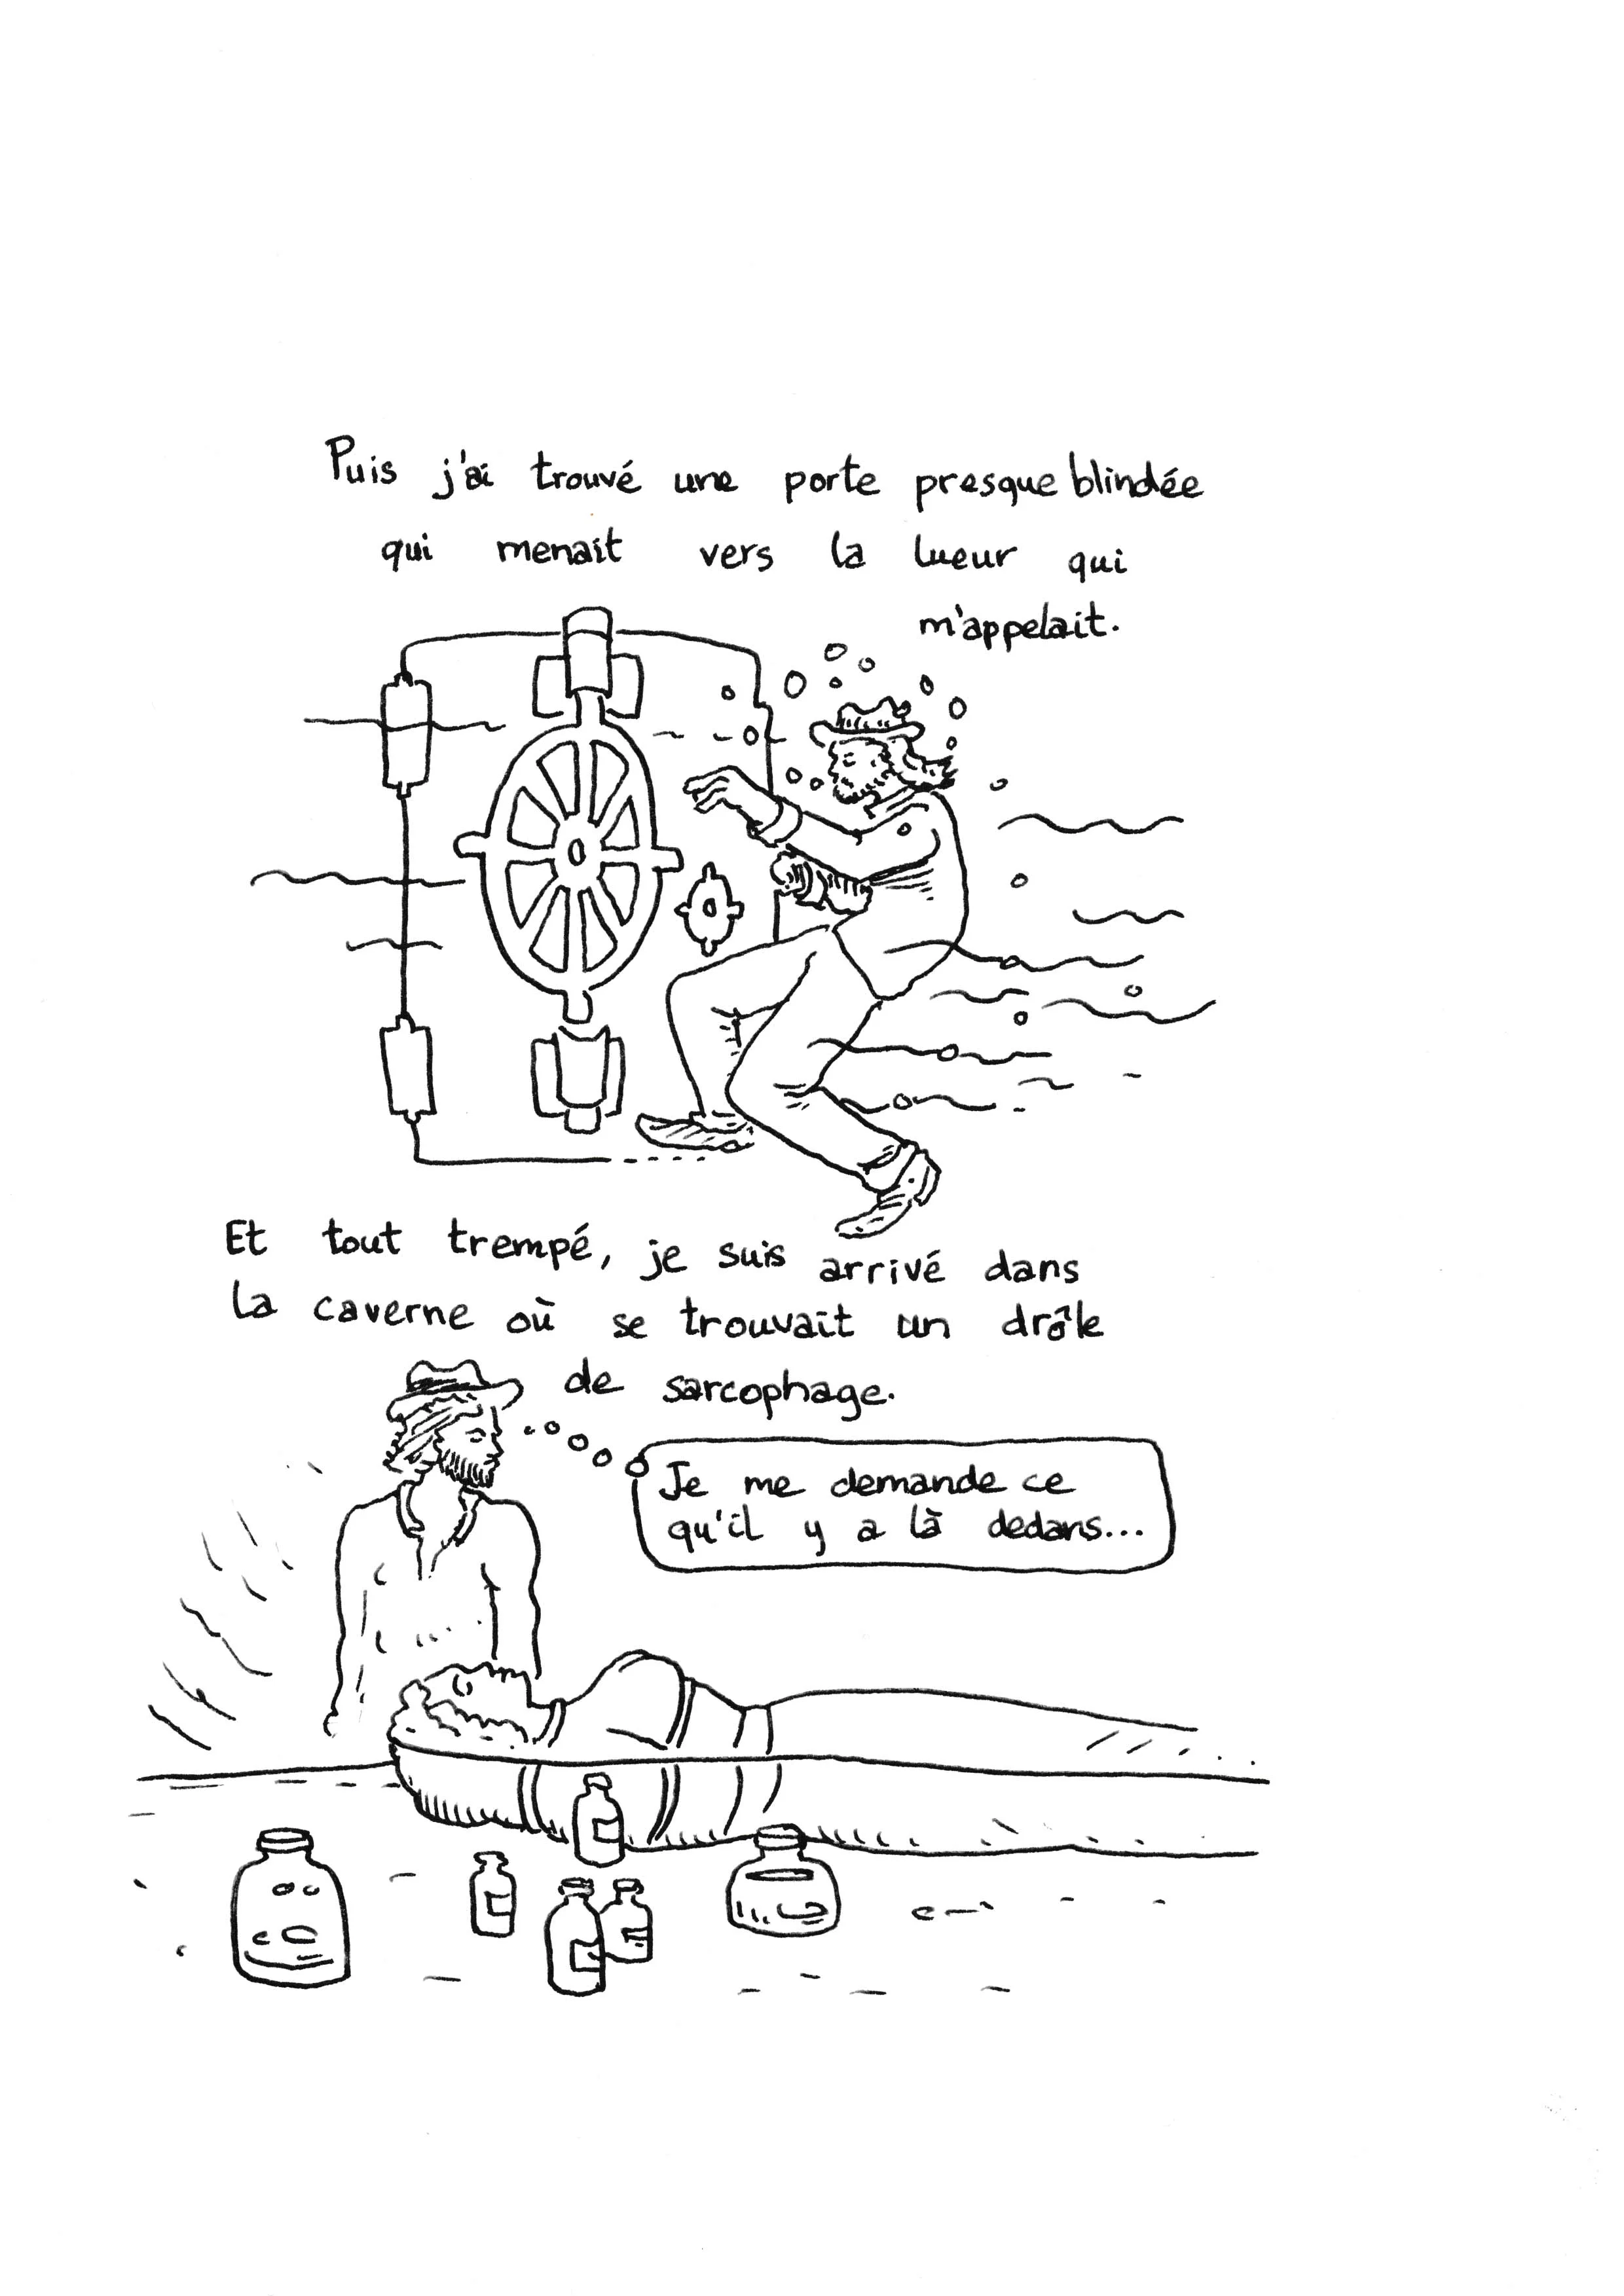 Puis j'ai trouvé une porte presque blindée
qui menait vers la lueur qui
m'appelait.
Et tout trempé, je suis arrivé dans
la caverne où se trouvait un drôle
de sarcophage.
Je me demande ce
qu'il y a là dedans...